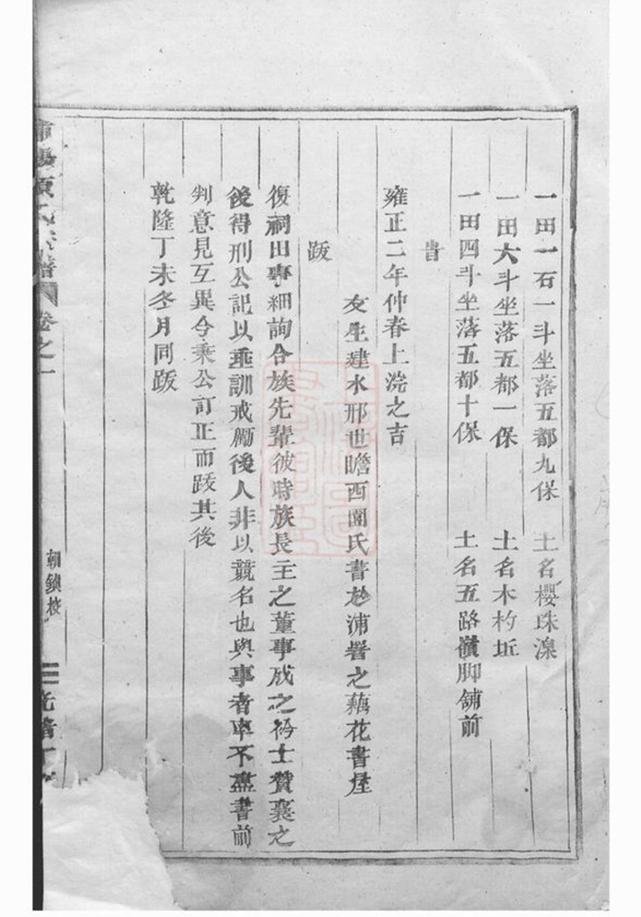 一田一石一斗坐落五都九保　土名櫻珠湶
一田六斗坐落五都一保　土名木杓坵
一田四斗坐落五都十保　土名五路嶺脚舖前
書
雍正二年仲春上浣之吉
友生建水邢世瞻西園氏書於浦署之藕花書屋
跋
復祠田事細詢合族先輩彼時族長主之董事成之衿士贊襄之
後得刑公記以垂訓戒勵後人非以競名也與事者率不盡書前
判意見互異今秉公訂正而跋其後
乾隆丁未冬月同跋
氏宗譜　卷之一
朝鎮校
三　光緒丁